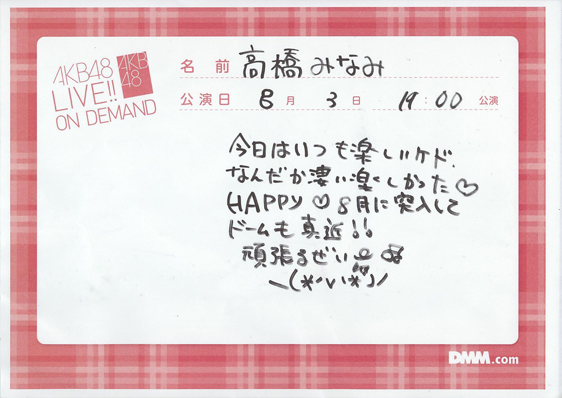 AKB48
LIVE!!
ON DEMAND
AKB
48
名前 高橋みなみ
公演日 8月 3日 19:00 公演
今日はいつも楽しいケド、
なんだか凄い楽しかった♡
HAPPY♡8月に突入して
ドームも真近!!
頑張るぜい
＼(*'v'*)ノ
DMM.com